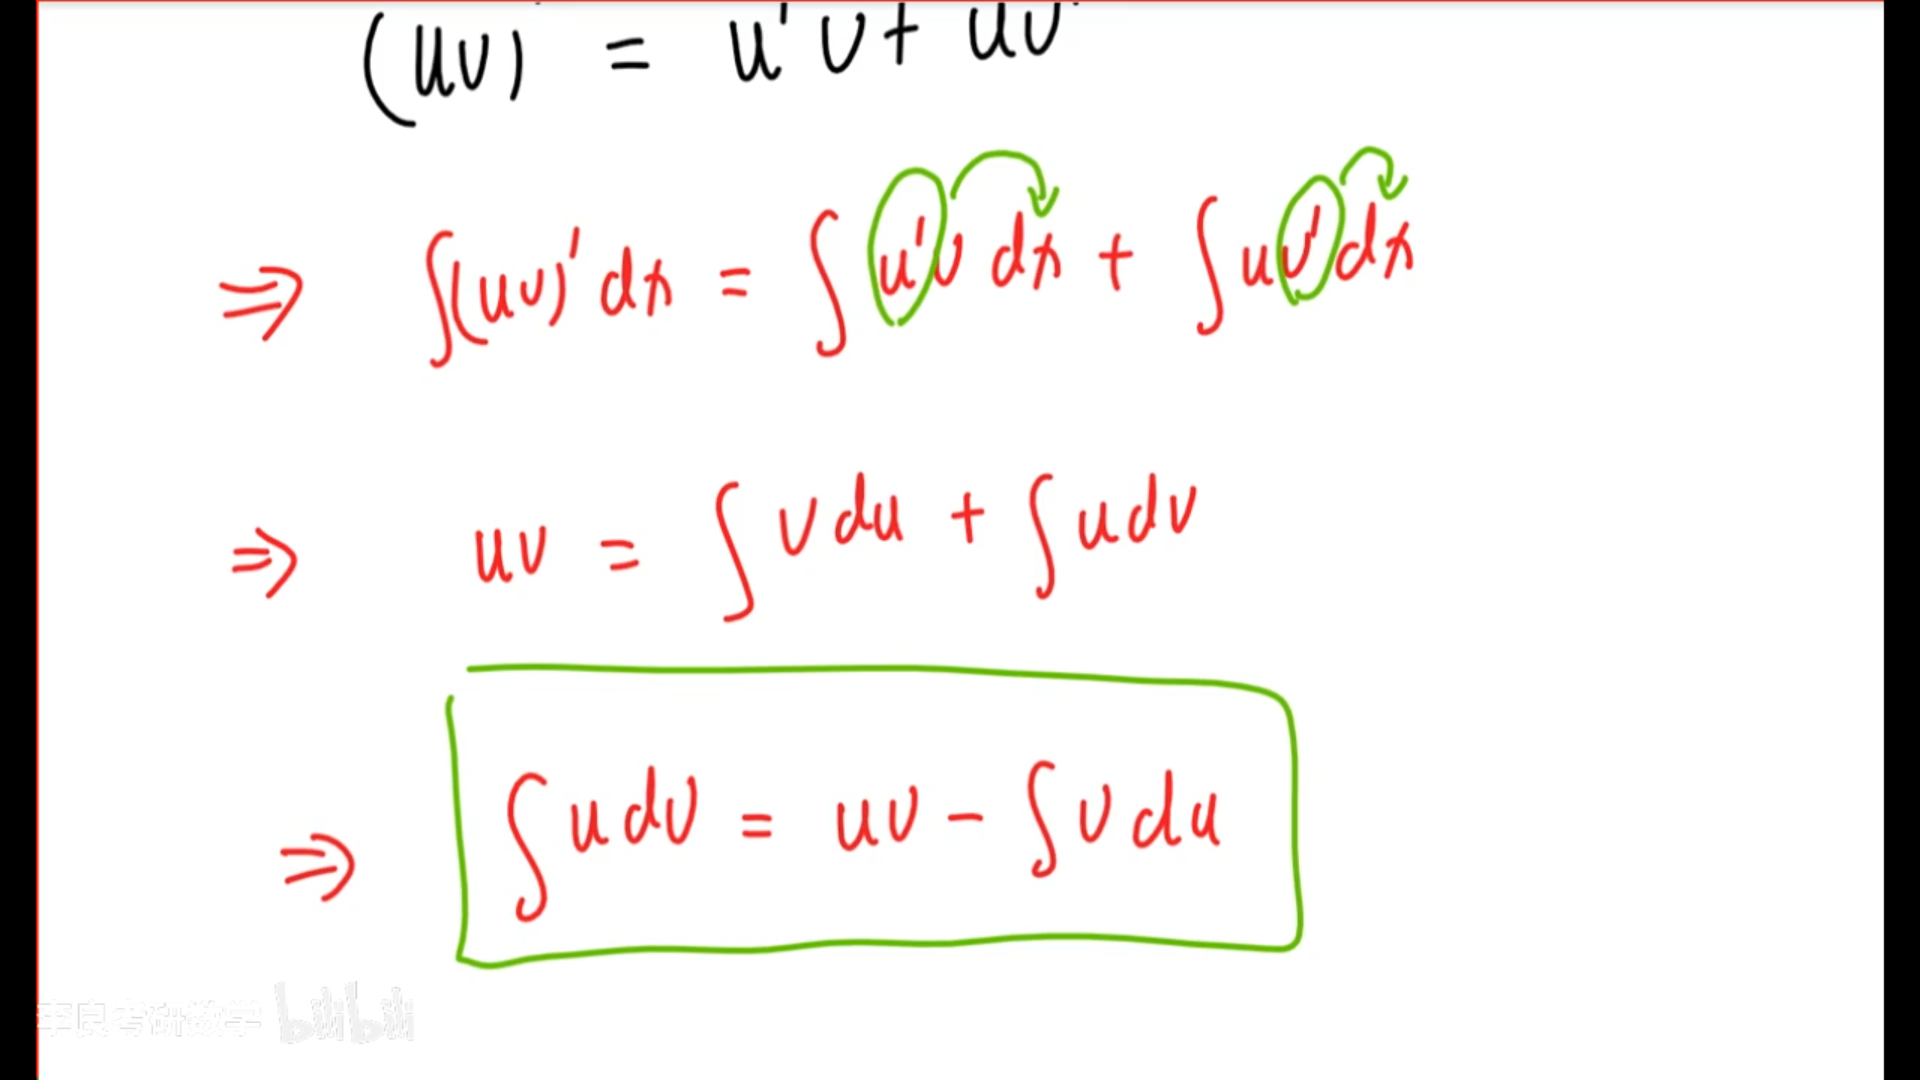 (uv)' = u'v + uv'
⇒ ∫(uv)'dx = ∫u'v dx + ∫uv'dx
⇒ uv = ∫v du + ∫u dv
⇒ ∫u dv = uv - ∫v du
李良考研数学 bilibili